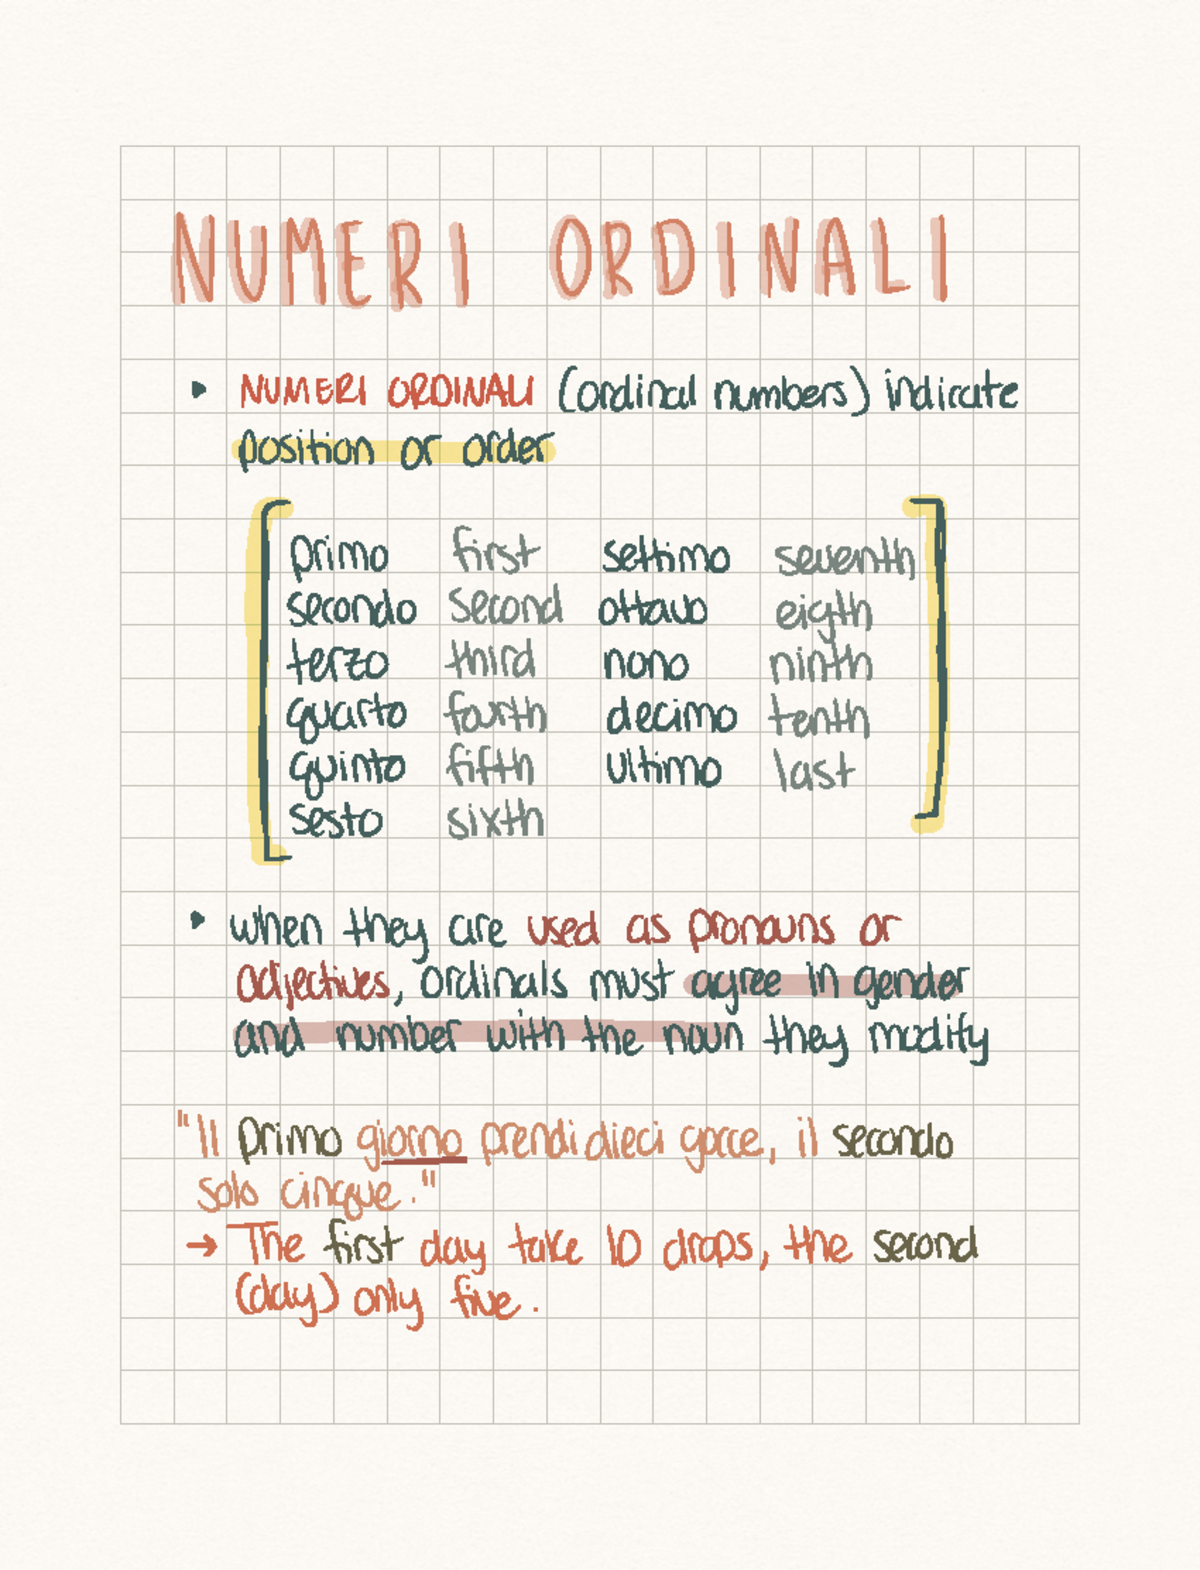 NUMERI ORDINALI
▸ NUMERI ORDINALI (ordinal numbers) indicate
position or order
primo first settimo seventh
secondo second ottavo eigth
terzo third nono ninth
quarto fourth decimo tenth
quinto fifth ultimo last
sesto sixth
▸ when they are used as pronouns or
adjectives, ordinals must agree in gender
and number with the noun they modify
"Il primo giorno prendi dieci gocce, il secondo
solo cinque."
→ The first day take 10 drops, the second
(day) only five.